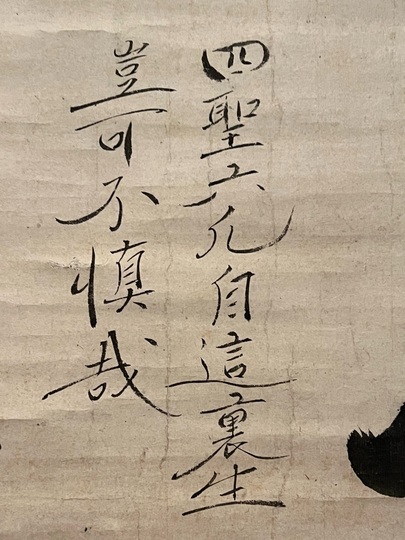 四聖六凡自這裏生
豈可不慎哉